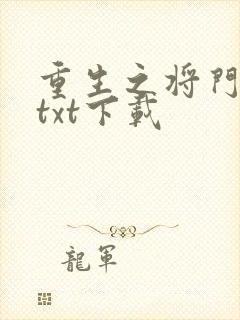 重生之将門
txt下載
龍軍